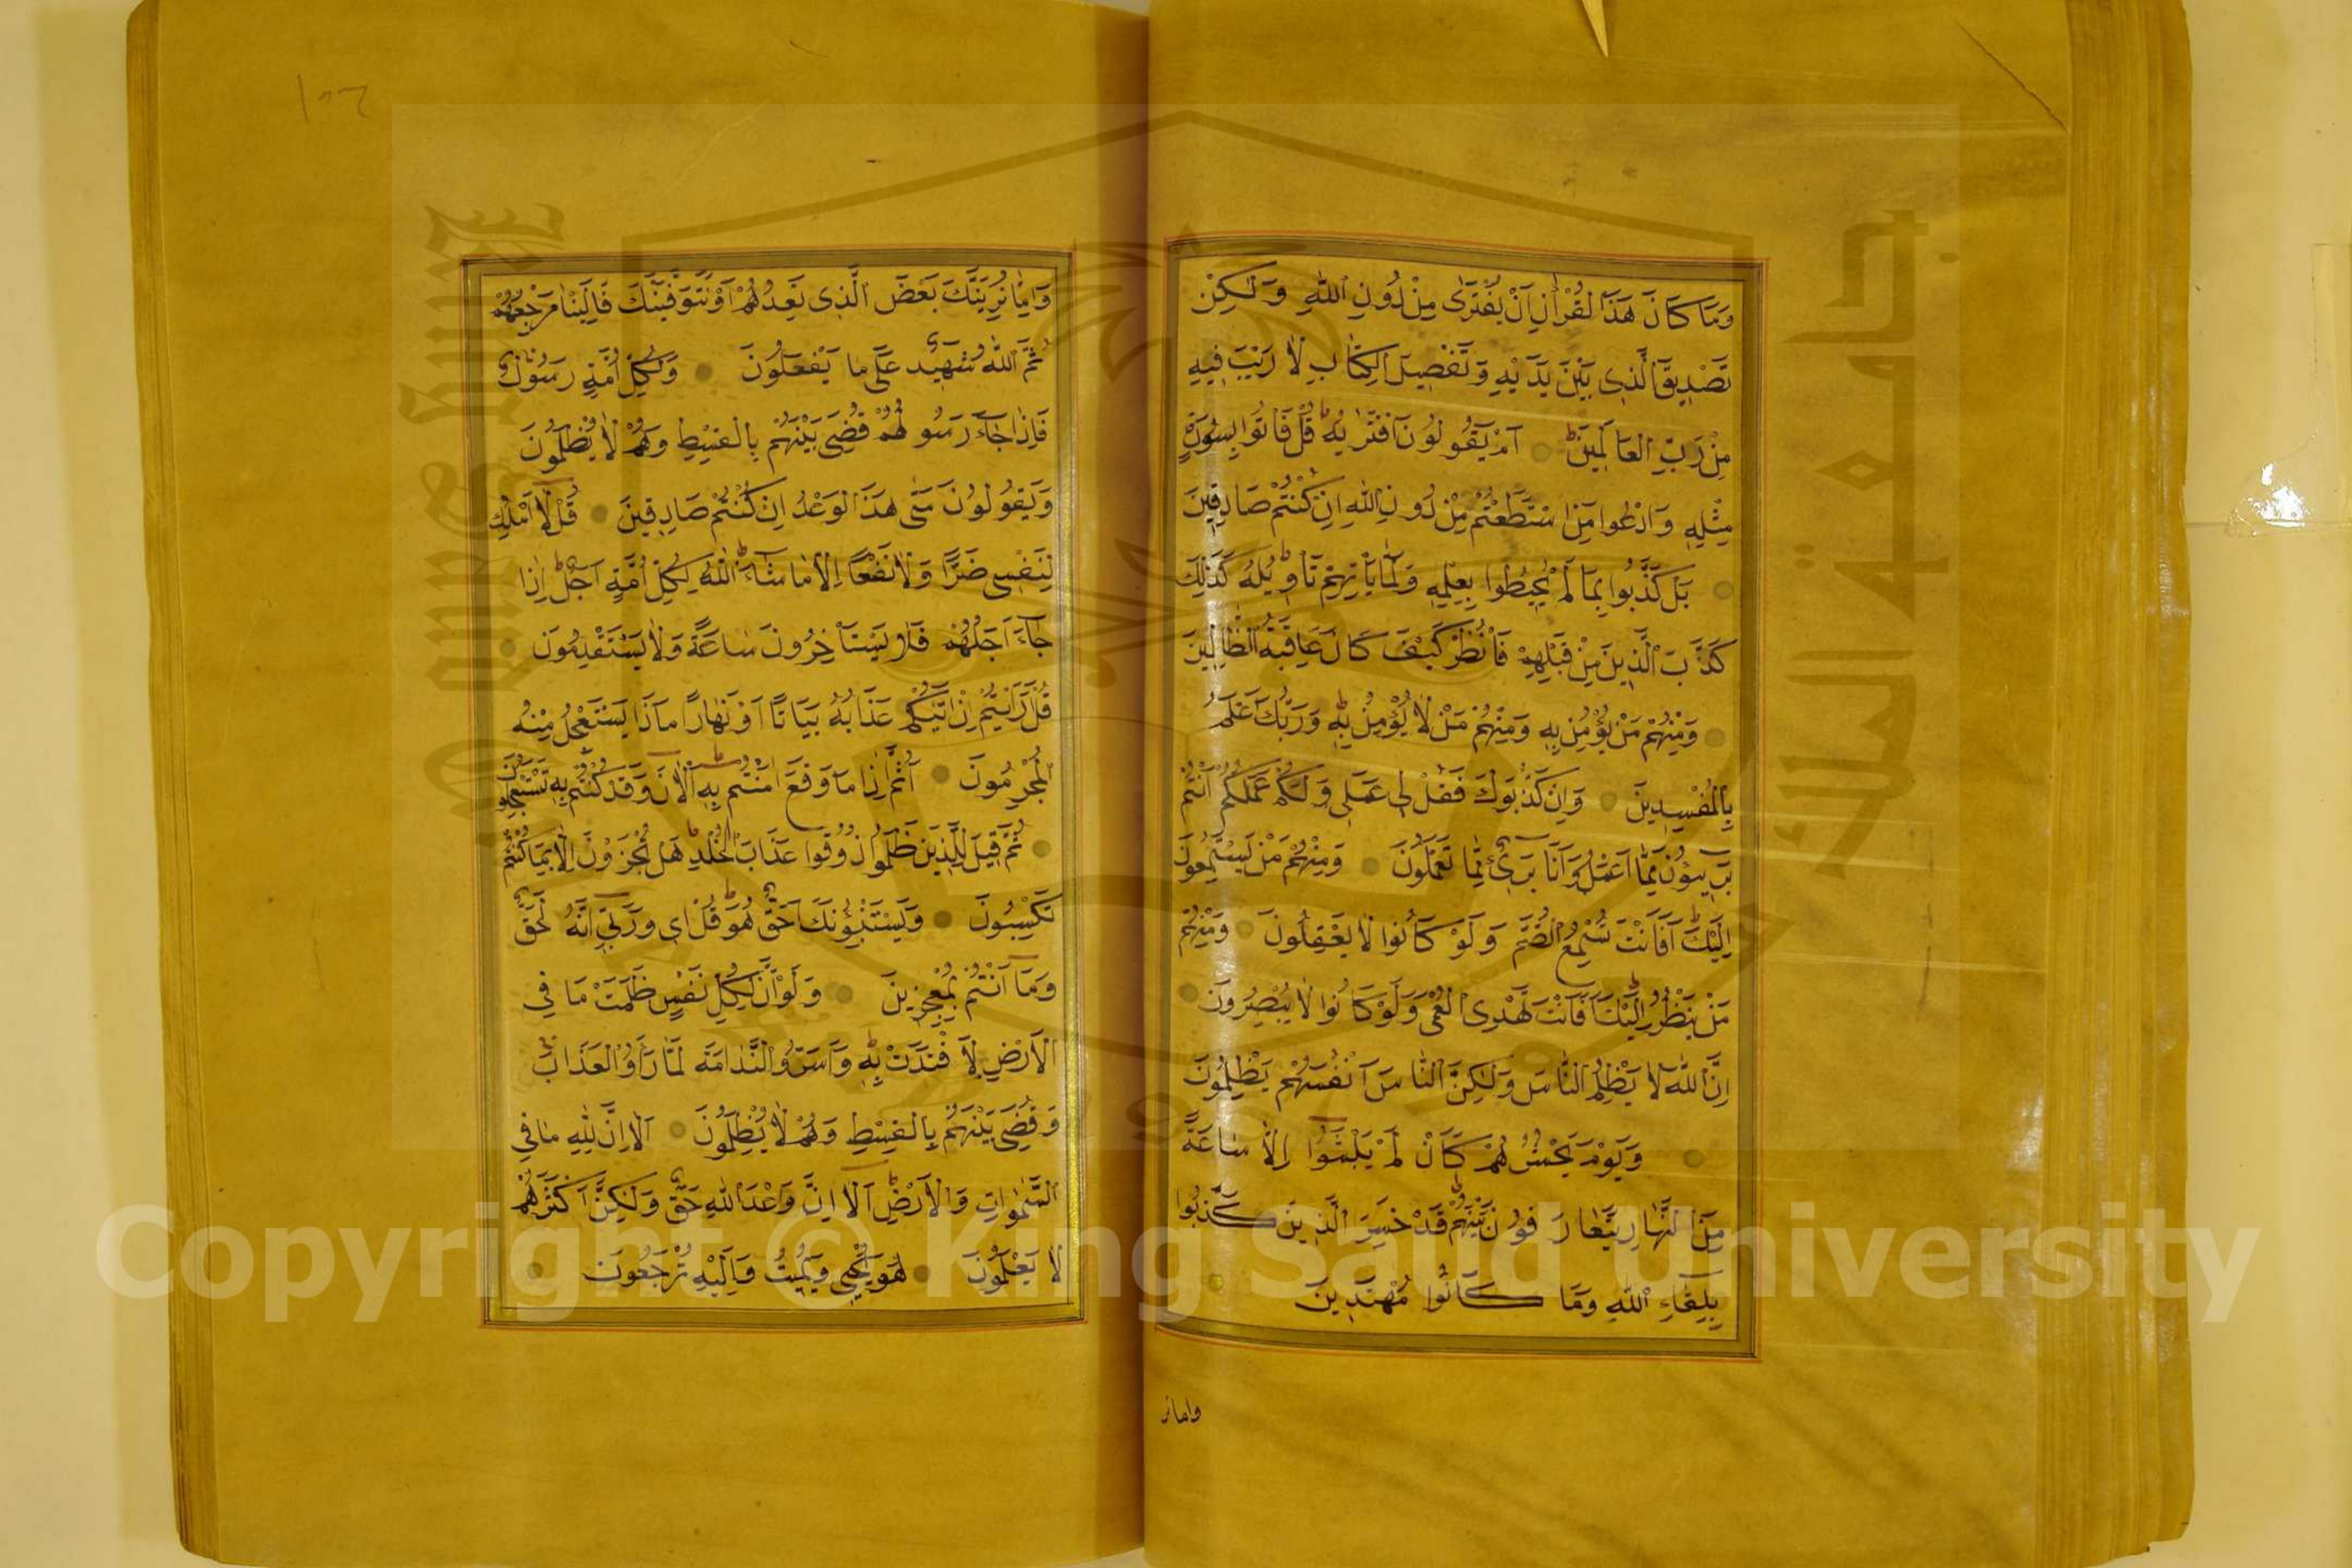 وَمَا كَانَ هَذَا الْقُرْاٰنُ اَنْ يُفْتَرٰى مِنْ دُونِ اللّٰهِ وَلٰكِنْ
تَصْدِيقَ الَّذِى بَيْنَ يَدَيْهِ وَتَفْصِيلَ الْكِتَابِ لَا رَيْبَ فِيهِ
مِنْ رَبِّ الْعَالَمِينَ اَمْ يَقُولُونَ افْتَرٰيهُ قُلْ فَاْتُوا بِسُورَةٍ
مِثْلِهِ وَادْعُوا مَنِ اسْتَطَعْتُمْ مِنْ دُونِ اللّٰهِ اِنْ كُنْتُمْ صَادِقِينَ
بَلْ كَذَّبُوا بِمَا لَمْ يُحِيطُوا بِعِلْمِهِ وَلَمَّا يَاْتِهِمْ تَاْوِيلُهُ كَذٰلِكَ
كَذَّبَ الَّذِينَ مِنْ قَبْلِهِمْ فَانْظُرْ كَيْفَ كَانَ عَاقِبَةُ الظَّالِمِينَ
وَمِنْهُمْ مَنْ يُؤْمِنُ بِهِ وَمِنْهُمْ مَنْ لَا يُؤْمِنُ بِهِ وَرَبُّكَ اَعْلَمُ
بِالْمُفْسِدِينَ وَاِنْ كَذَّبُوكَ فَقُلْ لِى عَمَلِى وَلَكُمْ عَمَلُكُمْ اَنْتُمْ
بَرِيئُونَ مِمَّا اَعْمَلُ وَاَنَا بَرِىءٌ مِمَّا تَعْمَلُونَ وَمِنْهُمْ مَنْ يَسْتَمِعُونَ
اِلَيْكَ اَفَاَنْتَ تُسْمِعُ الصُّمَّ وَلَوْ كَانُوا لَا يَعْقِلُونَ وَمِنْهُمْ
مَنْ يَنْظُرُ اِلَيْكَ اَفَاَنْتَ تَهْدِى الْعُمْىَ وَلَوْ كَانُوا لَا يُبْصِرُونَ
اِنَّ اللّٰهَ لَا يَظْلِمُ النَّاسَ وَلٰكِنَّ النَّاسَ اَنْفُسَهُمْ يَظْلِمُونَ
وَيَوْمَ يَحْشُرُهُمْ كَاَنْ لَمْ يَلْبَثُوا اِلَّا سَاعَةً
مِنَ النَّهَارِ يَتَعَارَفُونَ بَيْنَهُمْ قَدْ خَسِرَ الَّذِينَ كَذَّبُوا
بِلِقَاءِ اللّٰهِ وَمَا كَانُوا مُهْتَدِينَ
واما نر
وَاِمَّا نُرِيَنَّكَ بَعْضَ الَّذِى نَعِدُهُمْ اَوْ نَتَوَفَّيَنَّكَ فَاِلَيْنَا مَرْجِعُهُمْ
ثُمَّ اللّٰهُ شَهِيدٌ عَلٰى مَا يَفْعَلُونَ وَلِكُلِّ اُمَّةٍ رَسُولٌ
فَاِذَا جَاءَ رَسُولُهُمْ قُضِىَ بَيْنَهُمْ بِالْقِسْطِ وَهُمْ لَا يُظْلَمُونَ
وَيَقُولُونَ مَتٰى هٰذَا الْوَعْدُ اِنْ كُنْتُمْ صَادِقِينَ قُلْ لَا اَمْلِكُ
لِنَفْسِى ضَرًّا وَلَا نَفْعًا اِلَّا مَا شَاءَ اللّٰهُ لِكُلِّ اُمَّةٍ اَجَلٌ اِذَا
جَاءَ اَجَلُهُمْ فَلَا يَسْتَاْخِرُونَ سَاعَةً وَلَا يَسْتَقْدِمُونَ
قُلْ اَرَاَيْتُمْ اِنْ اَتٰيكُمْ عَذَابُهُ بَيَاتًا اَوْ نَهَارًا مَاذَا يَسْتَعْجِلُ مِنْهُ
الْمُجْرِمُونَ اَثُمَّ اِذَا مَا وَقَعَ اٰمَنْتُمْ بِهِ اٰلْاٰنَ وَقَدْ كُنْتُمْ بِهِ تَسْتَعْجِلُونَ
ثُمَّ قِيلَ لِلَّذِينَ ظَلَمُوا ذُوقُوا عَذَابَ الْخُلْدِ هَلْ تُجْزَوْنَ اِلَّا بِمَا كُنْتُمْ
تَكْسِبُونَ وَيَسْتَنْبِؤُنَكَ اَحَقٌّ هُوَ قُلْ اِى وَرَبِّى اِنَّهُ لَحَقٌّ
وَمَا اَنْتُمْ بِمُعْجِزِينَ وَلَوْ اَنَّ لِكُلِّ نَفْسٍ ظَلَمَتْ مَا فِى
الْاَرْضِ لَافْتَدَتْ بِهِ وَاَسَرُّوا النَّدَامَةَ لَمَّا رَاَوُا الْعَذَابَ
وَقُضِىَ بَيْنَهُمْ بِالْقِسْطِ وَهُمْ لَا يُظْلَمُونَ اَلَا اِنَّ لِلّٰهِ مَا فِى
السَّمٰوَاتِ وَالْاَرْضِ اَلَا اِنَّ وَعْدَ اللّٰهِ حَقٌّ وَلٰكِنَّ اَكْثَرَهُمْ
لَا يَعْلَمُونَ هُوَ يُحْيِى وَيُمِيتُ وَاِلَيْهِ تُرْجَعُونَ
جامعة الملك سعود
King Saud University
Copyright © King Saud University